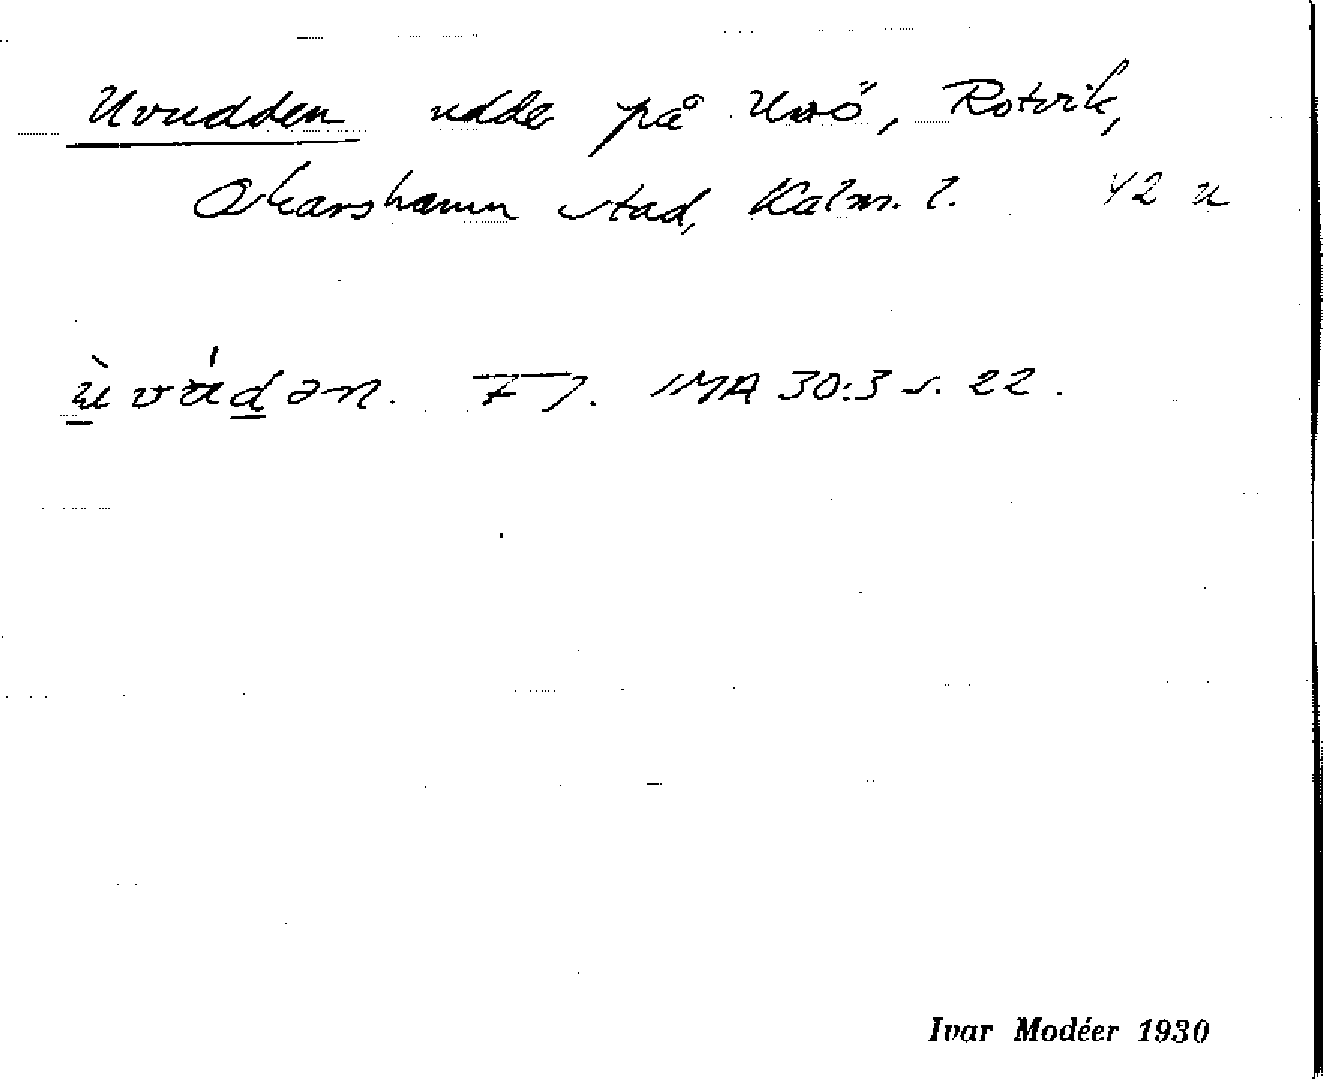 Uvudden udde på Uvö, Rotvik,
Oskarshamn stad, Kalm. l. 42 u
ùvúdən. IMA 30:3 s. 22.
Ivar Modéer 1930